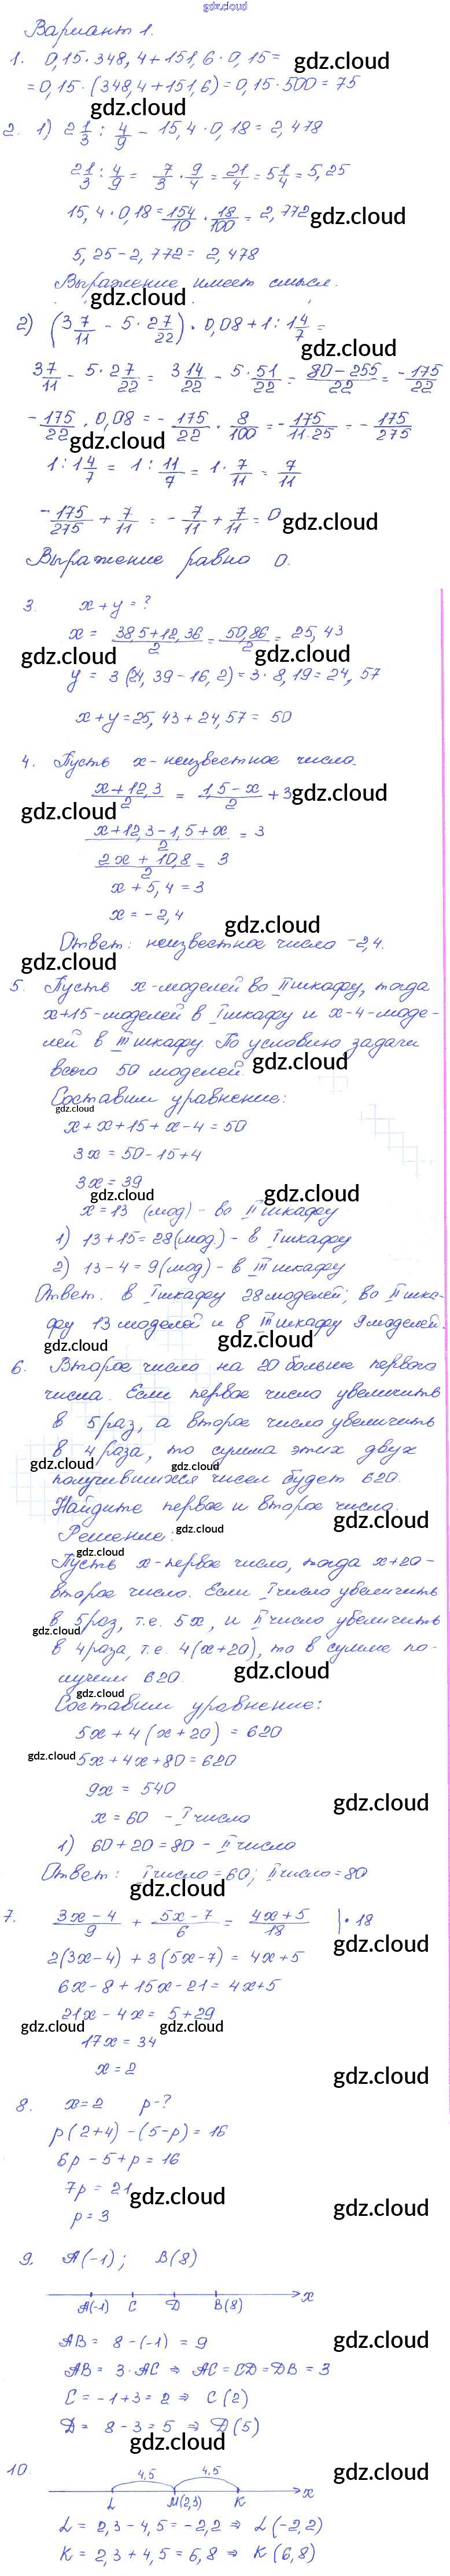 gdz.cloud
Вариант 1.
1. 0,15·348,4+151,6·0,15=
gdz.cloud
=0,15·(348,4+151,6)=0,15·500=75
gdz.cloud
2. 1) 2 1/3 : 4/9 - 15,4·0,18=2,478
2 1/3 : 4/9 = 7/3 · 9/4 = 21/4 = 5 1/4 = 5,25
15,4·0,18= 154/10 · 18/100 = 2,772
gdz.cloud
5,25-2,772=2,478
Выражение имеет смысл.
gdz.cloud
2) (3 7/11 - 5·2 7/22)·0,08+1:1 4/7 =
gdz.cloud
37/11 - 5·27/22 = 314/22 - 5·51/22 = 80-255/22 = -175/22
-175/22 · 0,08 = -175/22 · 8/100 = -175/11·25 = -175/275
gdz.cloud
1:1 4/7 = 1: 11/7 = 1· 7/11 = 7/11
-175/275 + 7/11 = -7/11 + 7/11 = 0
gdz.cloud
Выражение равно 0.
3. x+y=?
x = 38,5+12,36/2 = 50,86/2 = 25,43
gdz.cloud gdz.cloud
y = 3(24,39-16,2)=3·8,19=24,57
x+y=25,43+24,57=50
4. Пусть x-неизвестное число.
x+12,3/2 = 1,5-x/2 + 3
gdz.cloud
gdz.cloud
x+12,3-1,5+x/2 = 3
2x+10,8/2 = 3
x+5,4=3
x=-2,4
gdz.cloud
Ответ: неизвестное число -2,4.
gdz.cloud
5. Пусть x-моделей во II шкафу, тогда
x+15-моделей в I шкафу и x-4-моде-
лей в III шкафу. По условию задачи
всего 50 моделей.
gdz.cloud
Составим уравнение:
gdz.cloud
x+x+15+x-4=50
3x=50-15+4
3x=39
gdz.cloud gdz.cloud
x=13 (мод)-во II шкафу
1) 13+15=28(мод.)-в I шкафу
2) 13-4=9(мод)-в III шкафу
gdz.cloud
Ответ. в I шкафу 28 моделей; во II шка-
фу 13 моделей и в III шкафу 9 моделей.
gdz.cloud gdz.cloud
6. Второе число на 20 больше первого
числа. Если первое число увеличить
в 5 раз, а второе число увеличить
в 4 раза, то сумма этих двух
gdz.cloud gdz.cloud
получившихся чисел будет 620.
Найдите первое и второе число.
gdz.cloud
Решение:
gdz.cloud
gdz.cloud
Пусть x-первое число, тогда x+20-
второе число. Если I число увеличить
в 5 раз, т.е. 5x, и II число увеличить
gdz.cloud
в 4 раза, т.е. 4(x+20), то в сумме по-
лучим 620.
gdz.cloud
gdz.cloud
Составим уравнение:
5x+4(x+20)=620
gdz.cloud
5x+4x+80=620
9x=540
gdz.cloud
x=60 - I число
1) 60+20=80- II число
Ответ: I число=60; II число=80
gdz.cloud
7. 3x-4/9 + 5x-7/6 = 4x+5/18 |·18
gdz.cloud
2(3x-4)+3(5x-7)=4x+5
6x-8+15x-21=4x+5
21x-4x=5+29
gdz.cloud gdz.cloud
17x=34
x=2
gdz.cloud
8. x=2 p-?
p(2+4)-(5-p)=16
6p-5+p=16
7p=21
gdz.cloud
gdz.cloud
p=3
9. A(-1); B(8)
A(-1) C D B(8) x
gdz.cloud
AB=8-(-1)=9
AB=3·AC ⇒ AC=CD=DB=3
C=-1+3=2 ⇒ C(2)
D=8-3=5 ⇒ D(5)
gdz.cloud
10. 4,5 4,5
gdz.cloud
L M(2,3) K x
L=2,3-4,5=-2,2 ⇒ L(-2,2)
K=2,3+4,5=6,8 ⇒ K(6,8)
gdz.cloud